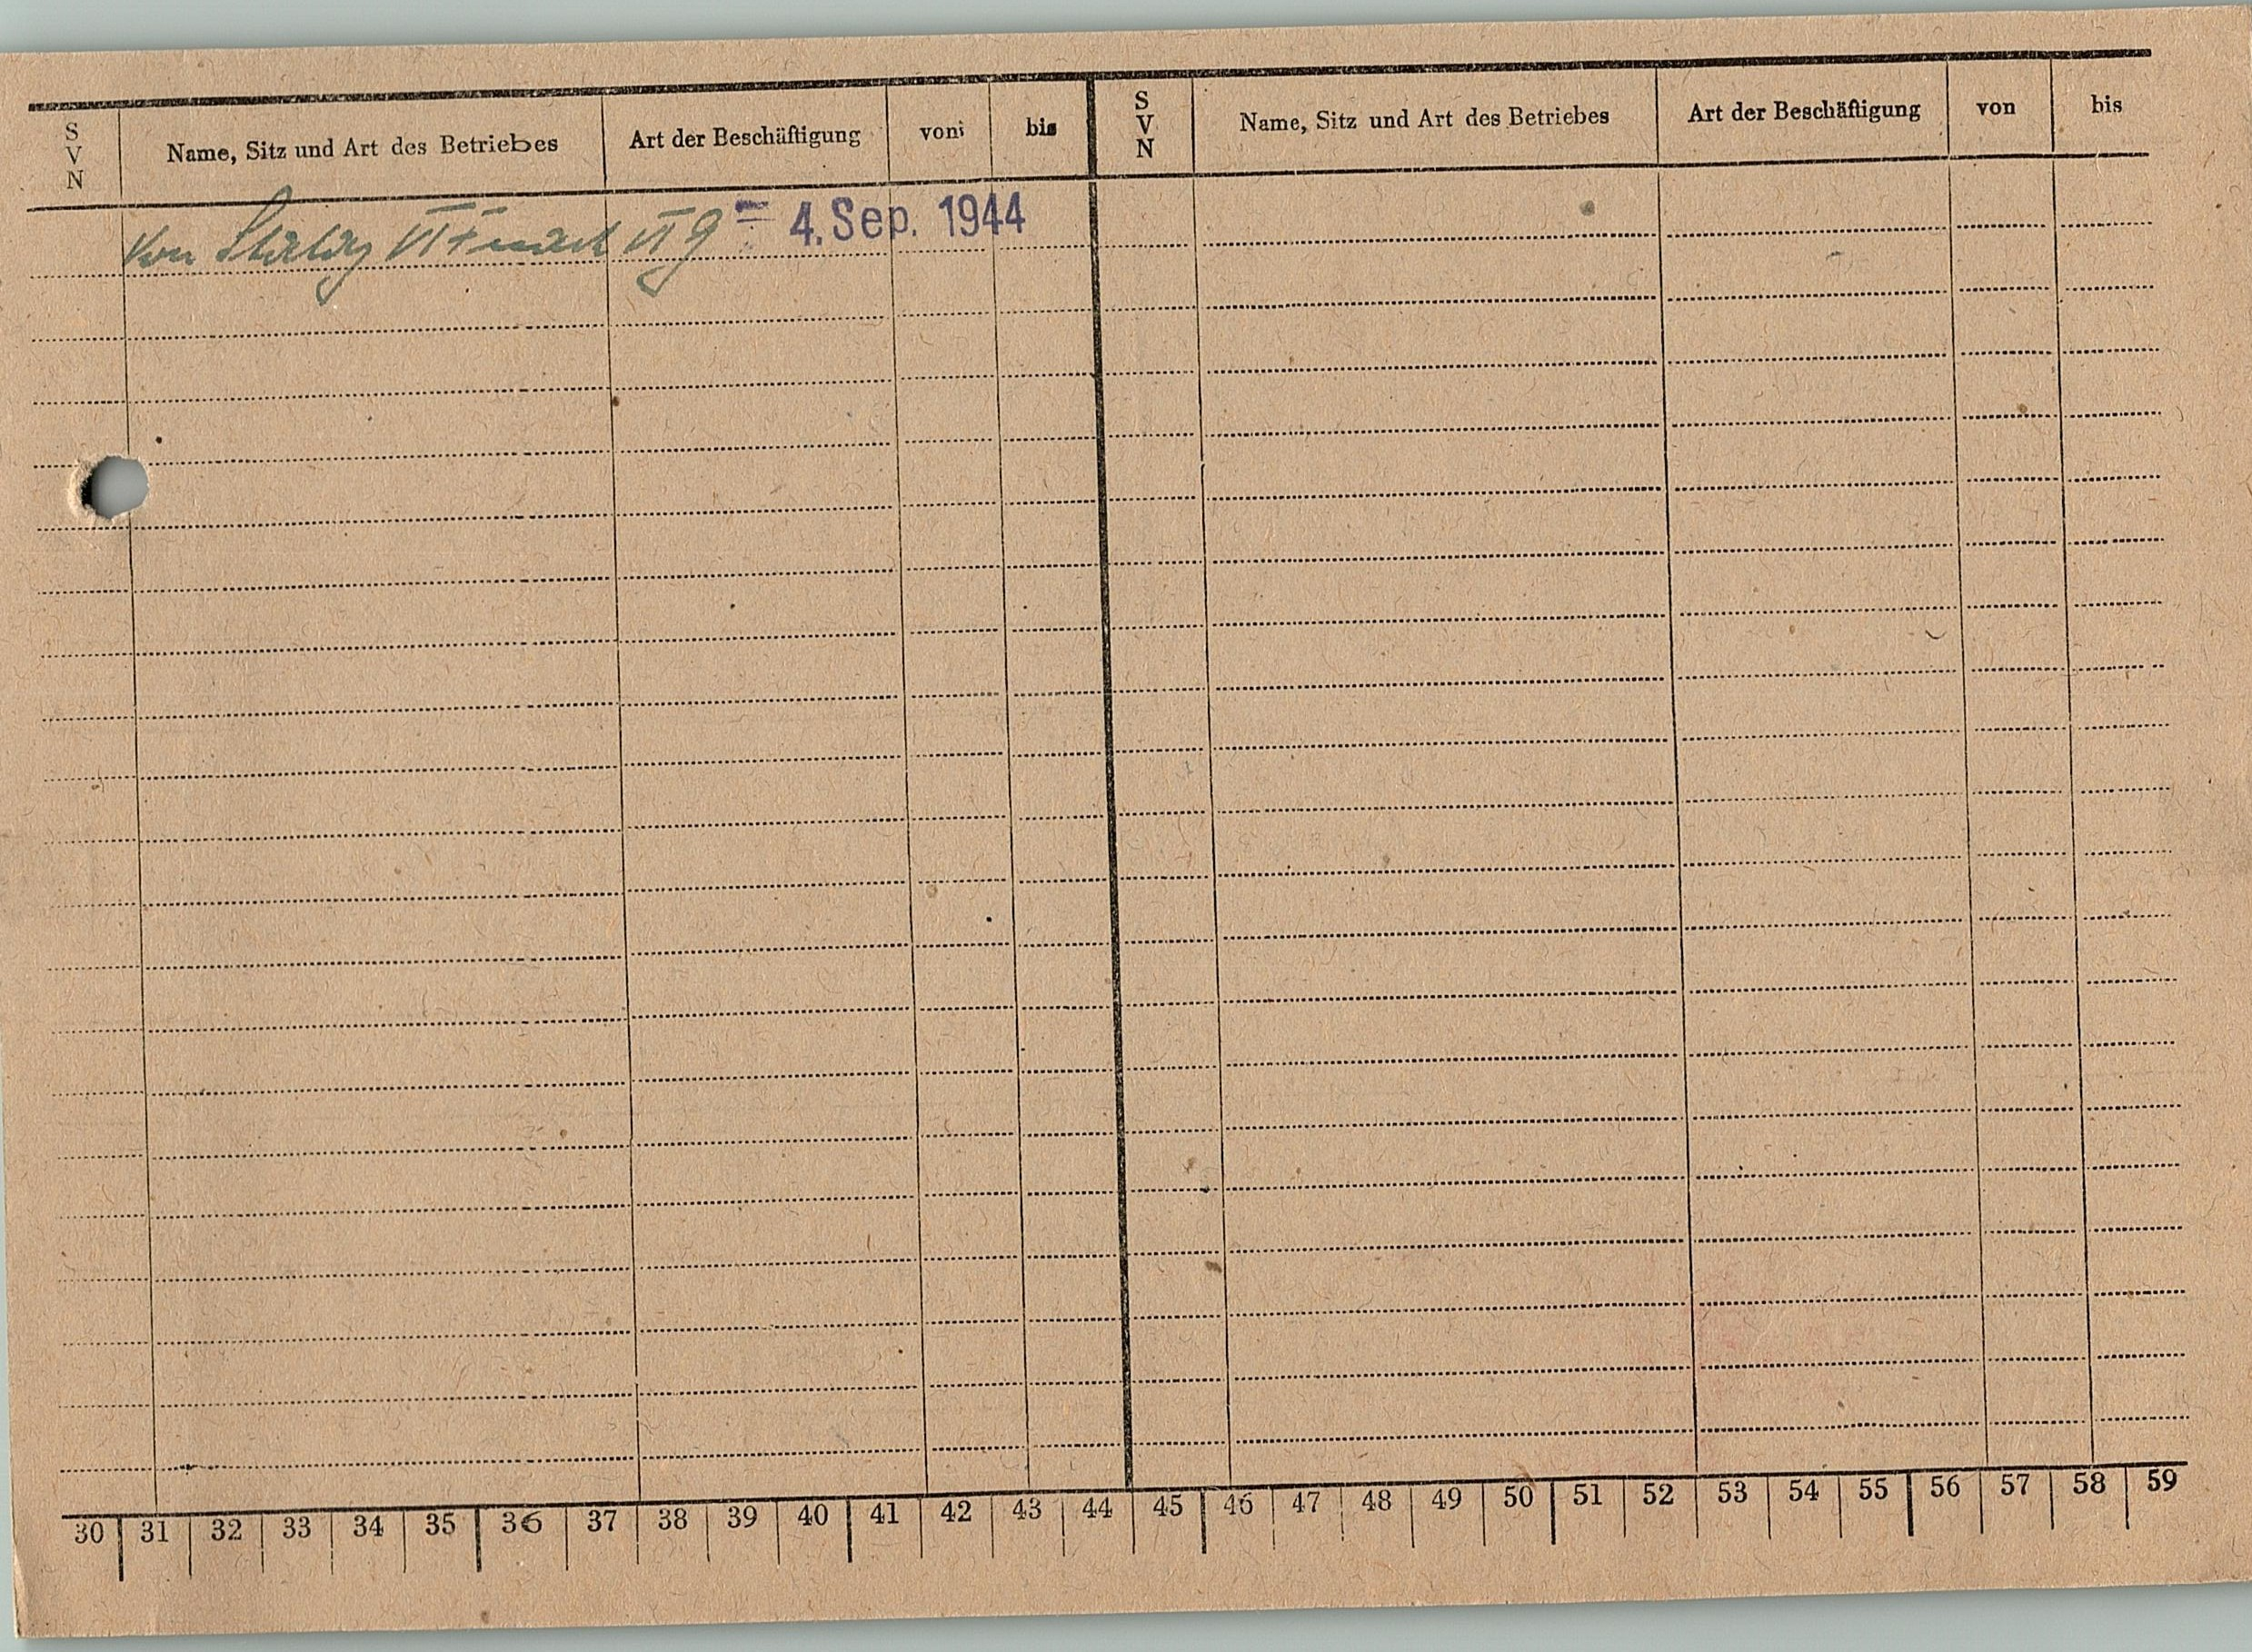 S V N Name, Sitz und Art des Betriebes Art der Beschäftigung von bis S V N Name, Sitz und Art des Betriebes Art der Beschäftigung von bis
von Stalag VI F nach VI G - 4. Sep. 1944
30 31 32 33 34 35 36 37 38 39 40 41 42 43 44 45 46 47 48 49 50 51 52 53 54 55 56 57 58 59